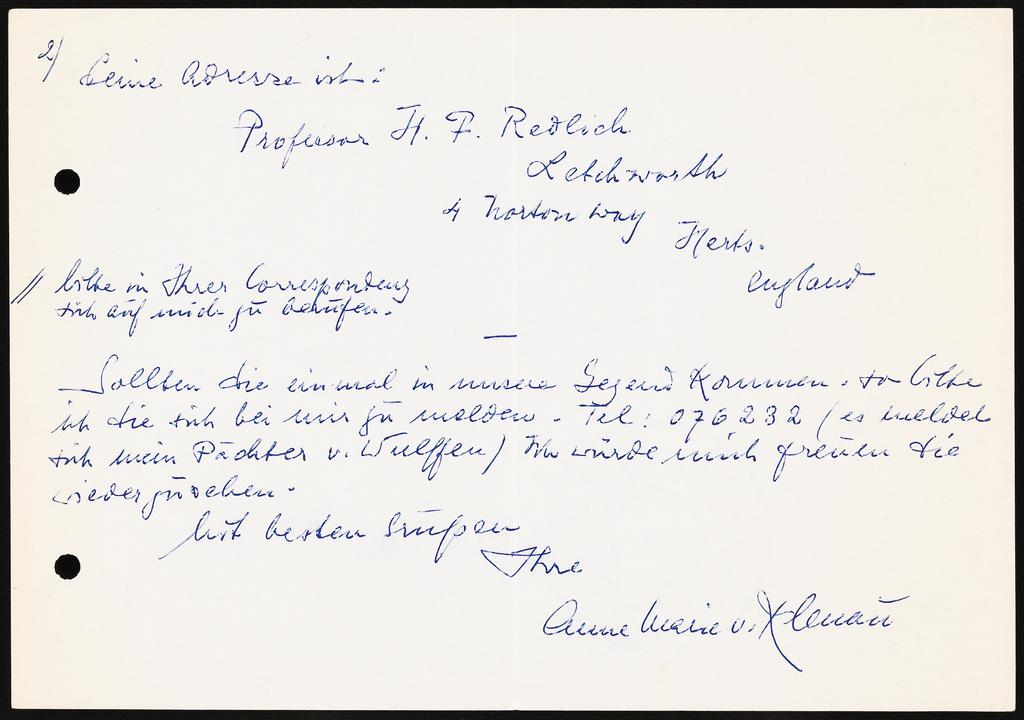 2)
Seine Adresse ist:
Professor H. F. Redlich
Letchworth
4 Norton way
Herts.
England
// bitte in Ihrer Correspondenz
sich auf mich zu berufen.
—
Sollten Sie einmal in unsere Gegend kommen. so bitte
ich Sie sich bei mir zu melden. Tel: 076232 (es meldet
sich mein Pächter v. Wulffen) Ich würde mich freuen Sie
wiederzusehen.
Mit besten Grüßen
Ihre
Anne Marie v. Klenau